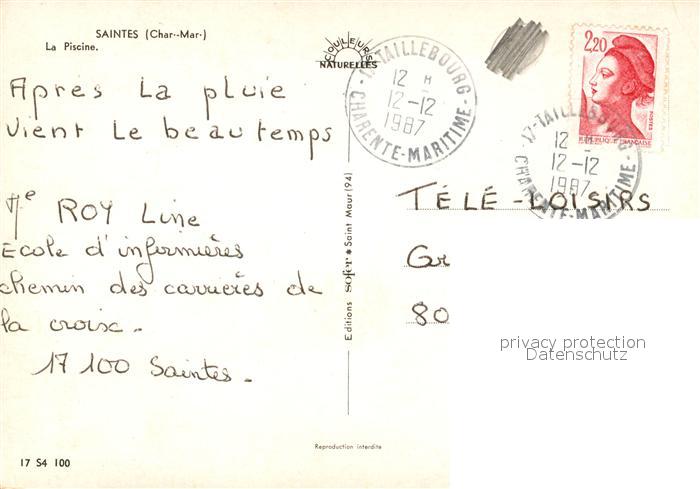 SAINTES (Char.-Mar.)
La Piscine.
COULEURS
NATURELLES
Après La pluie
vient Le beau temps
Me ROY Line
Ecole d'infirmières
chemin des carrières de
la croix.
17 100 Saintes.
17-TAILLEBOURG
12 H
12-12
1987
CHARENTE-MARITIME
2,20
POSTES
REPUBLIQUE FRANÇAISE
17-TAILLEBOURG
12 H
12-12
1987
CHARENTE-MARITIME
TÉLÉ-LOISIRS
Gr
80
privacy protection
Datenschutz
Editions sofer ★ Saint Maur (94)
Reproduction interdite
17 S4 100